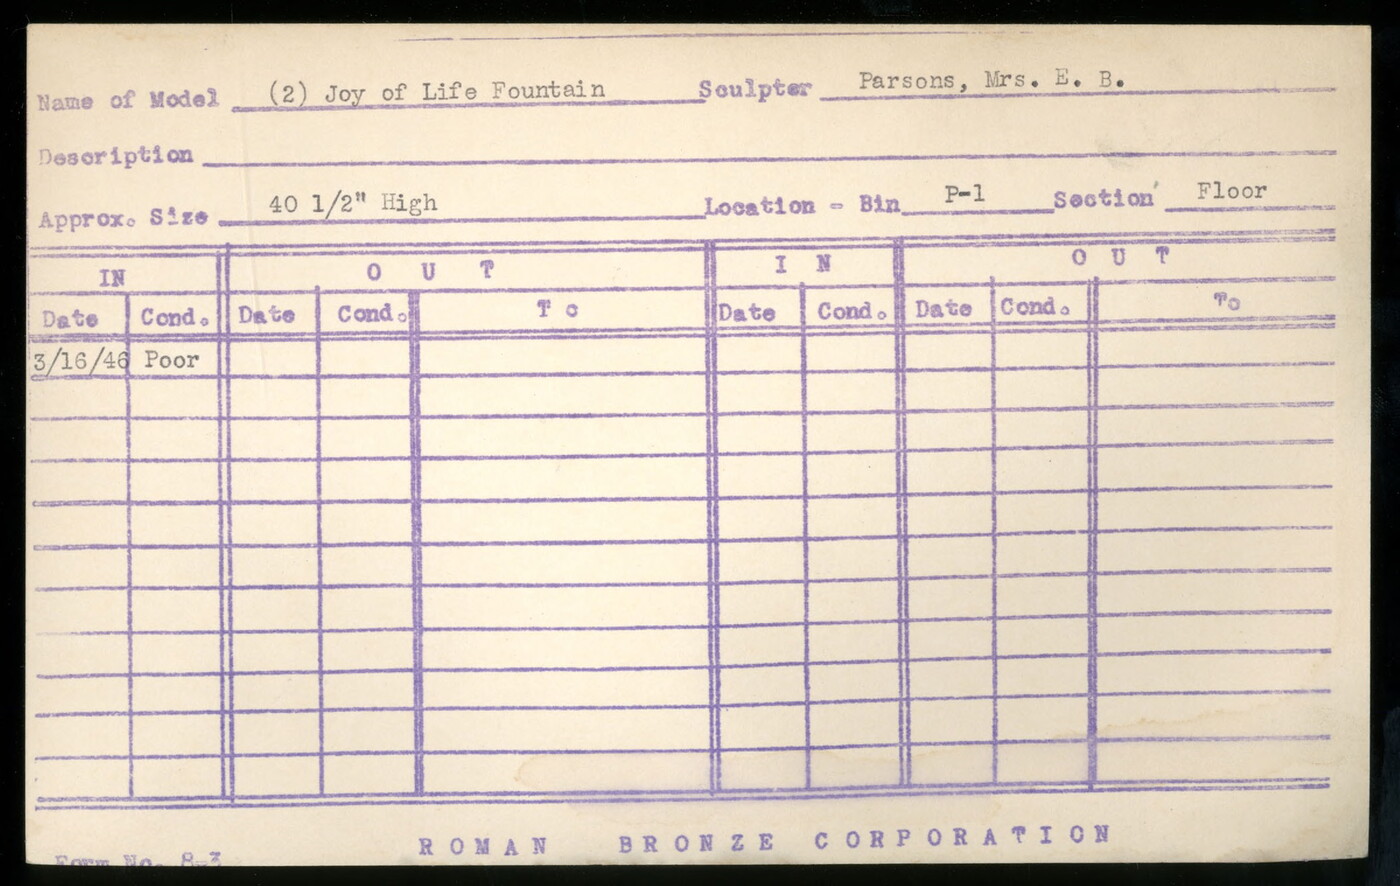 Name of Model (2) Joy of Life Fountain Sculpter Parsons, Mrs. E. B.
Description
Approx. Size 40 1/2" High Location - Bin P-1 Section Floor
IN O U T I N O U T
Date Cond. Date Cond. T o Date Cond. Date Cond. To
3/16/46 Poor
R O M A N B R O N Z E C O R P O R A T I O N
Form No. 8-3